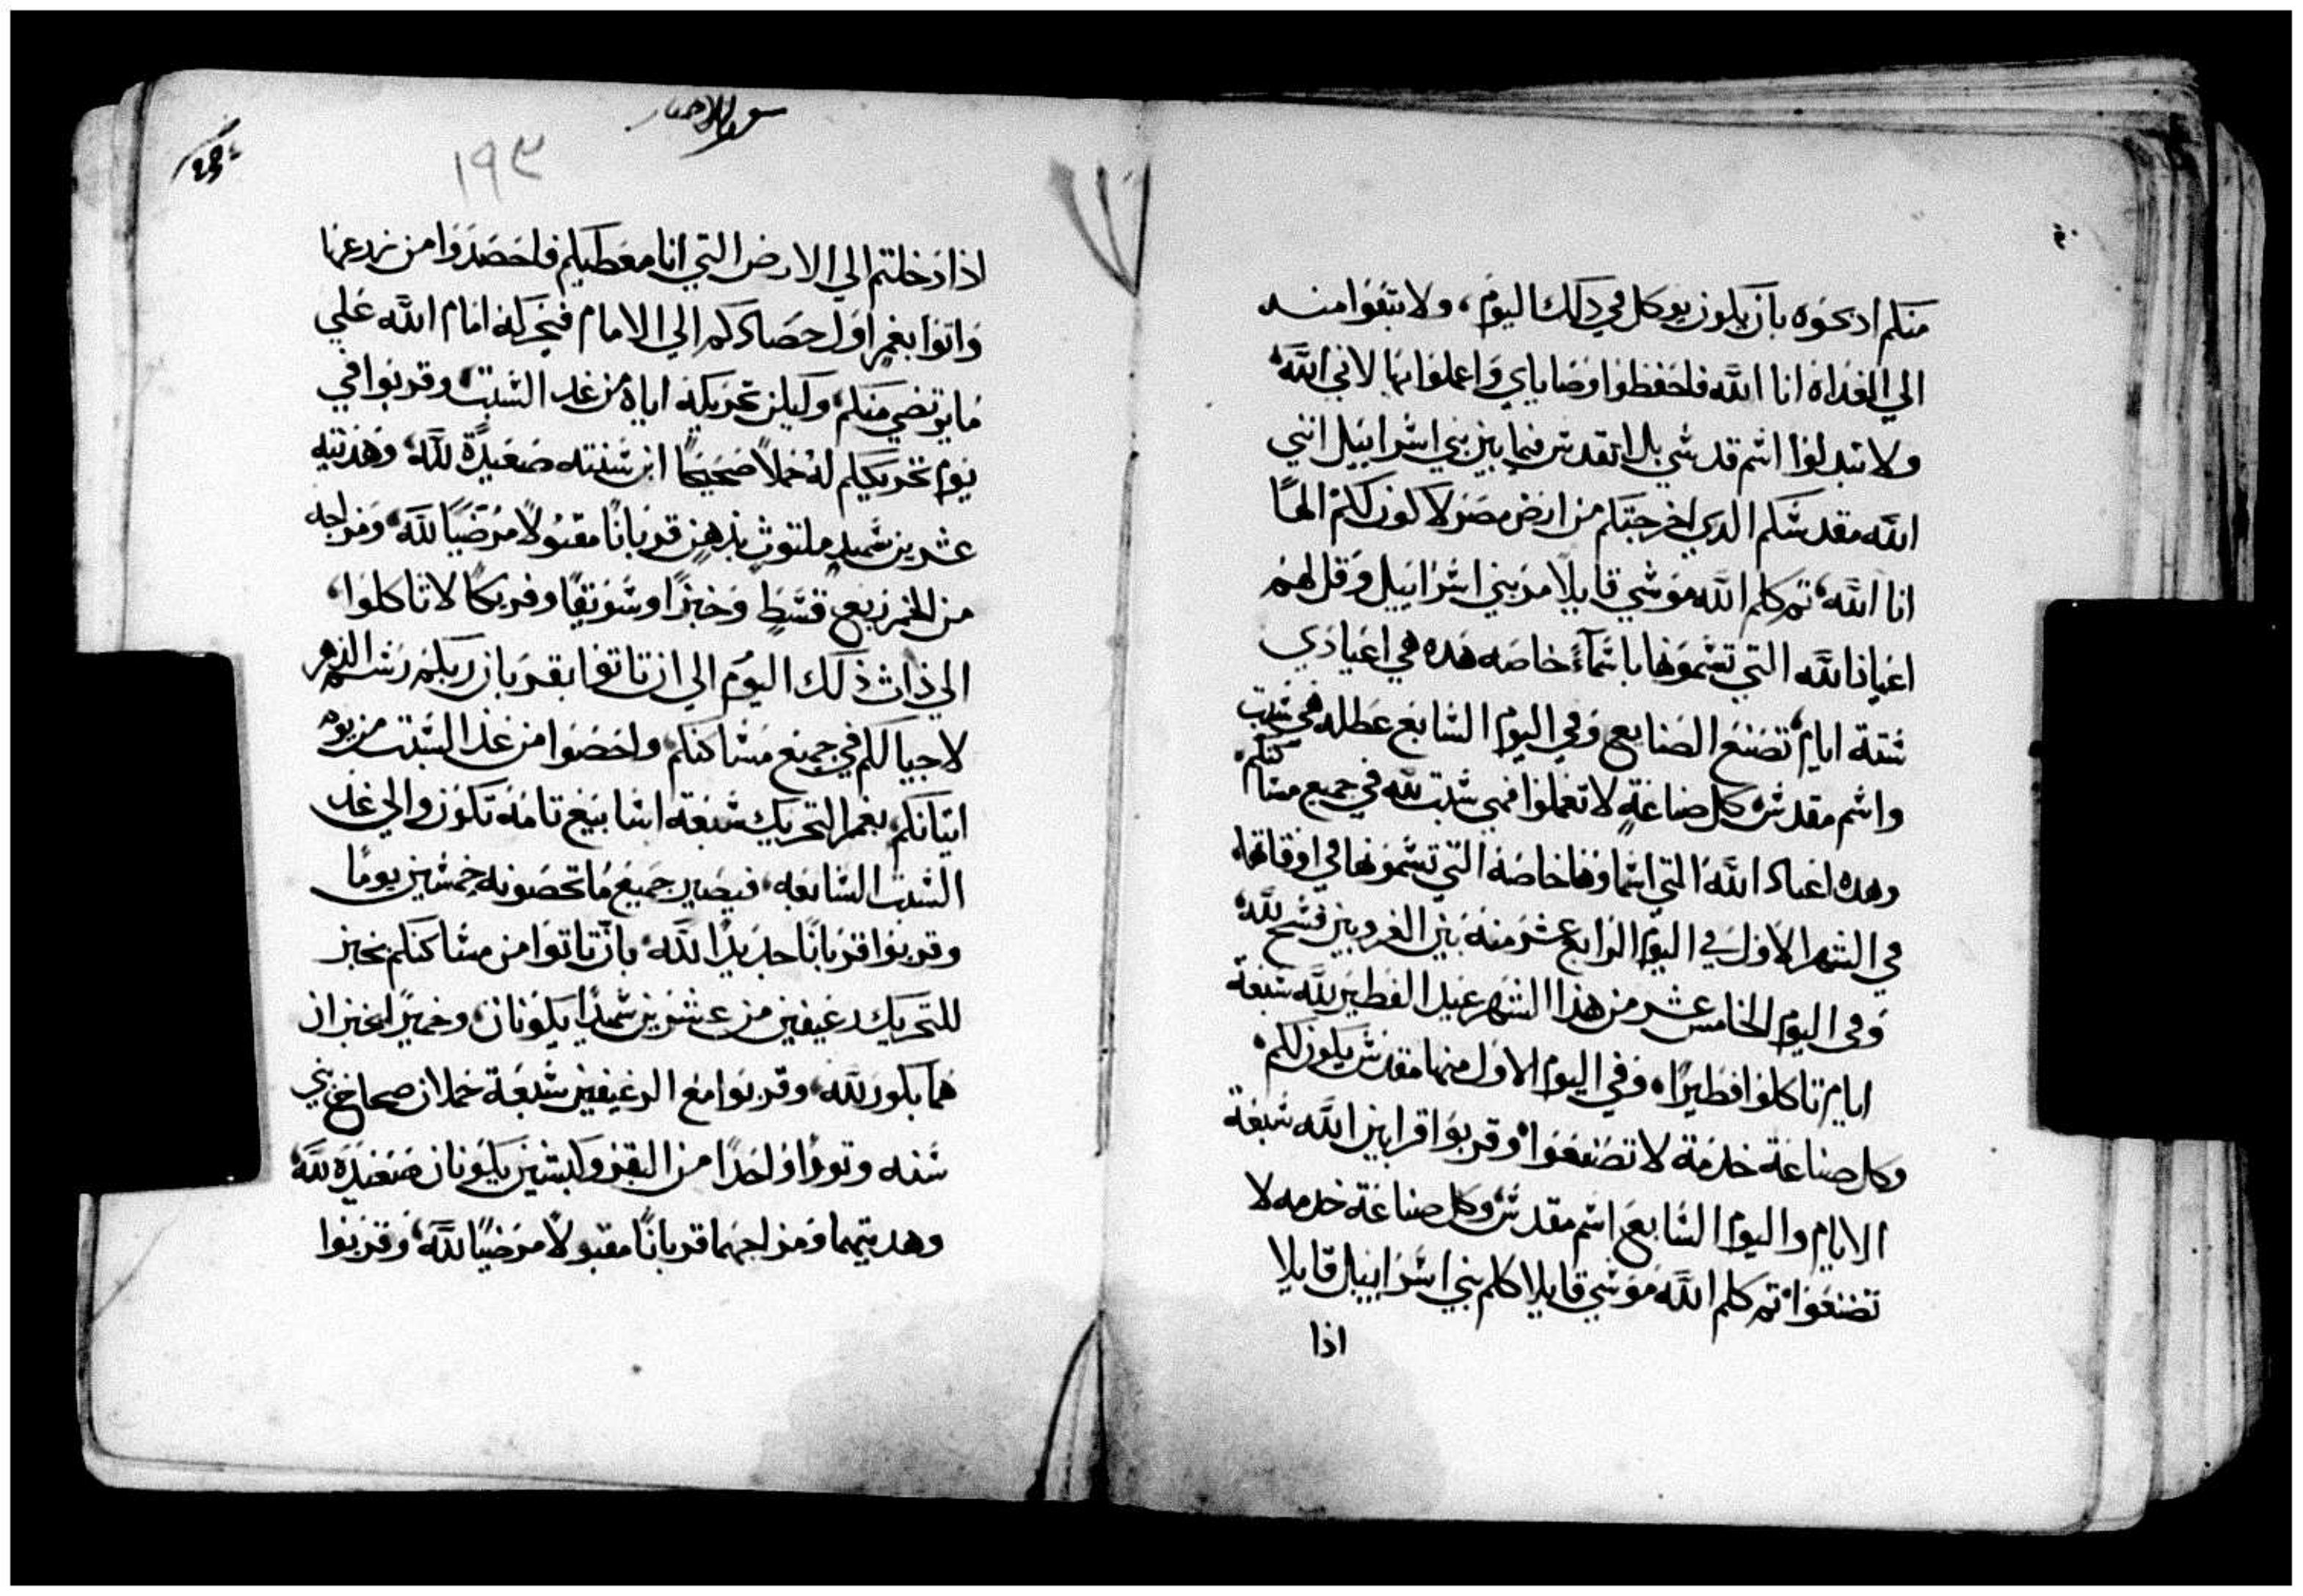 منكم ادبحوه بان يكون يوكل في دلك اليوم، ولا تبقوا منه
الي الغداة انا الله فاحفظوا وصاياي واعملوا بها لاني الله
ولا تبدلوا اسم قدسي بل اتقدس فيما بين بني اسراييل انني
الله مقدسكم الدي اخرجتكم من ارض مصر لاكون لكم الهًا
انا الله، تم كلم الله موسي قايلا مر بني اسراييل وقل لهم
اعياد الله التي تسموها باسمآء خاصه هده هي اعيادي
ستة ايام تصنع الصنايع وفي اليوم السابع عطله هي سبت
واسم مقدس كل صناعةٍ لا تعملوا فهي سبت لله في جميع مساكنكم
وهده اعياد الله التي اسماوها خاصة التي تسمونها في اوقاتها
في الشهر الاول في اليوم الرابع عشر منه بين الغروبين فسح لله
وفي اليوم الخامس عشر من هذا الشهر عيد الفطير لله سبعة
ايام تاكلوا فطيرًا، وفي اليوم الاول منها مقدس يكون لكم
وكل صناعة خدمة لا تصنعوا وقربوا قرابين الله سبعة
الايام واليوم السابع اسم مقدس وكل صناعة خدمه لا
تصنعوا تم كلم الله موسي قايلا كلم بني اسراييل قايلا
اذا
سفر الاحبار
١٩٣
اذا دخلتم الي الارض التي انا معطيكم فاحصدوا من زرعها
واتوا بغمر اول حصادكم الي الامام فيحركه امام الله علي
ما يرتضي منكم، وليكن تحريكه اياه من غد السبت وقربوا في
يوم تحريككم له حملاً صحيحًا ابن سنته صعيدة لله، وهديته
عشرين سميدٍ ملتوث بدهن قربانًا مقبولاً مرضيًا لله، ومزاجه
من الخمر ربع قسط وخبزًا وسويقًا وفريكًا لا تاكلوا،
الي ذات ذلك اليوم الي ان تاتوا بقربان ربكم رسم الدهر
لاجيالكم في جميع مساكنكم، واحصوا من غد السبت من يوم
اتيانكم بغمر التحريك سبعة اسابيع تامة تكون والي غد
السبت السابعه، فيصير جميع ما تحصونه خمسين يومًا
وقربوا قربانًا جديدًا لله، بان تاتوا من مساكنكم بخبز
للتحريك رغيفين من عشرين سميدًا يكونان، وخميرًا يخبزان
هما بكور لله، وقربوا مع الرغيفين سبعة حملان صحاح بني
سنه وتورًا واحدًا من البقر وكبشين يكونان صعيده لله
وهديتهما ومزاجهما قربانًا مقبولاً مرضيًا لله، وقربوا